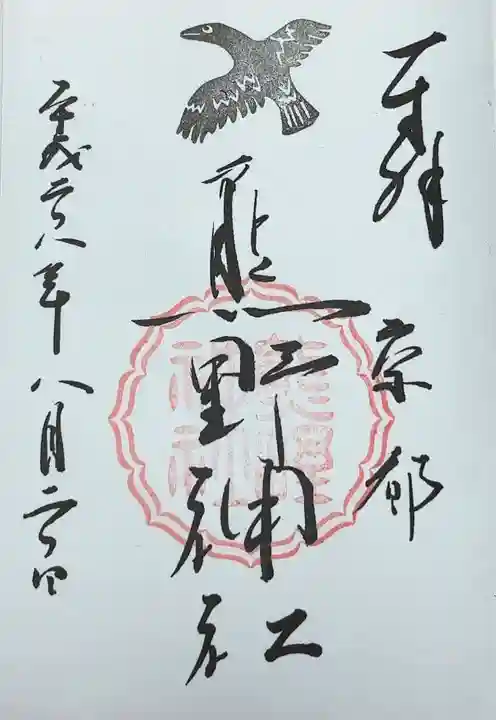 奉拝
京都
熊野神社
熊野
神社
平成二八年八月二日